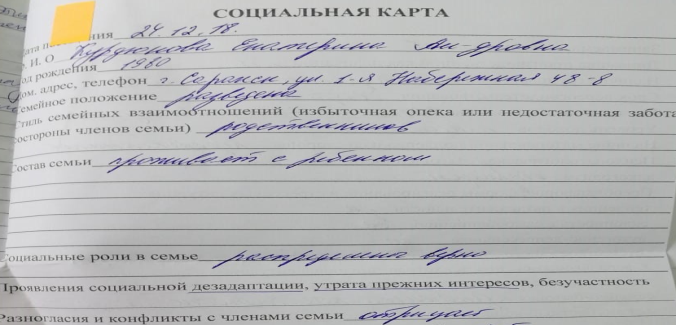 СОЦИАЛЬНАЯ КАРТА
24.12.18.
И. О Курдюкова Екатерина Ан-дровна
од рождения 1980
ом. адрес, телефон г. Саранск, ул. 1-я Набережная 48-8
емейное положение разведена
Стиль семейных взаимоотношений (избыточная опека или недостаточная забота
стороны членов семьи) родственников
Состав семьи проживает с ребенком
Социальные роли в семье распределены верно
Проявления социальной дезадаптации, утрата прежних интересов, безучастность
Разногласия и конфликты с членами семьи отрицает